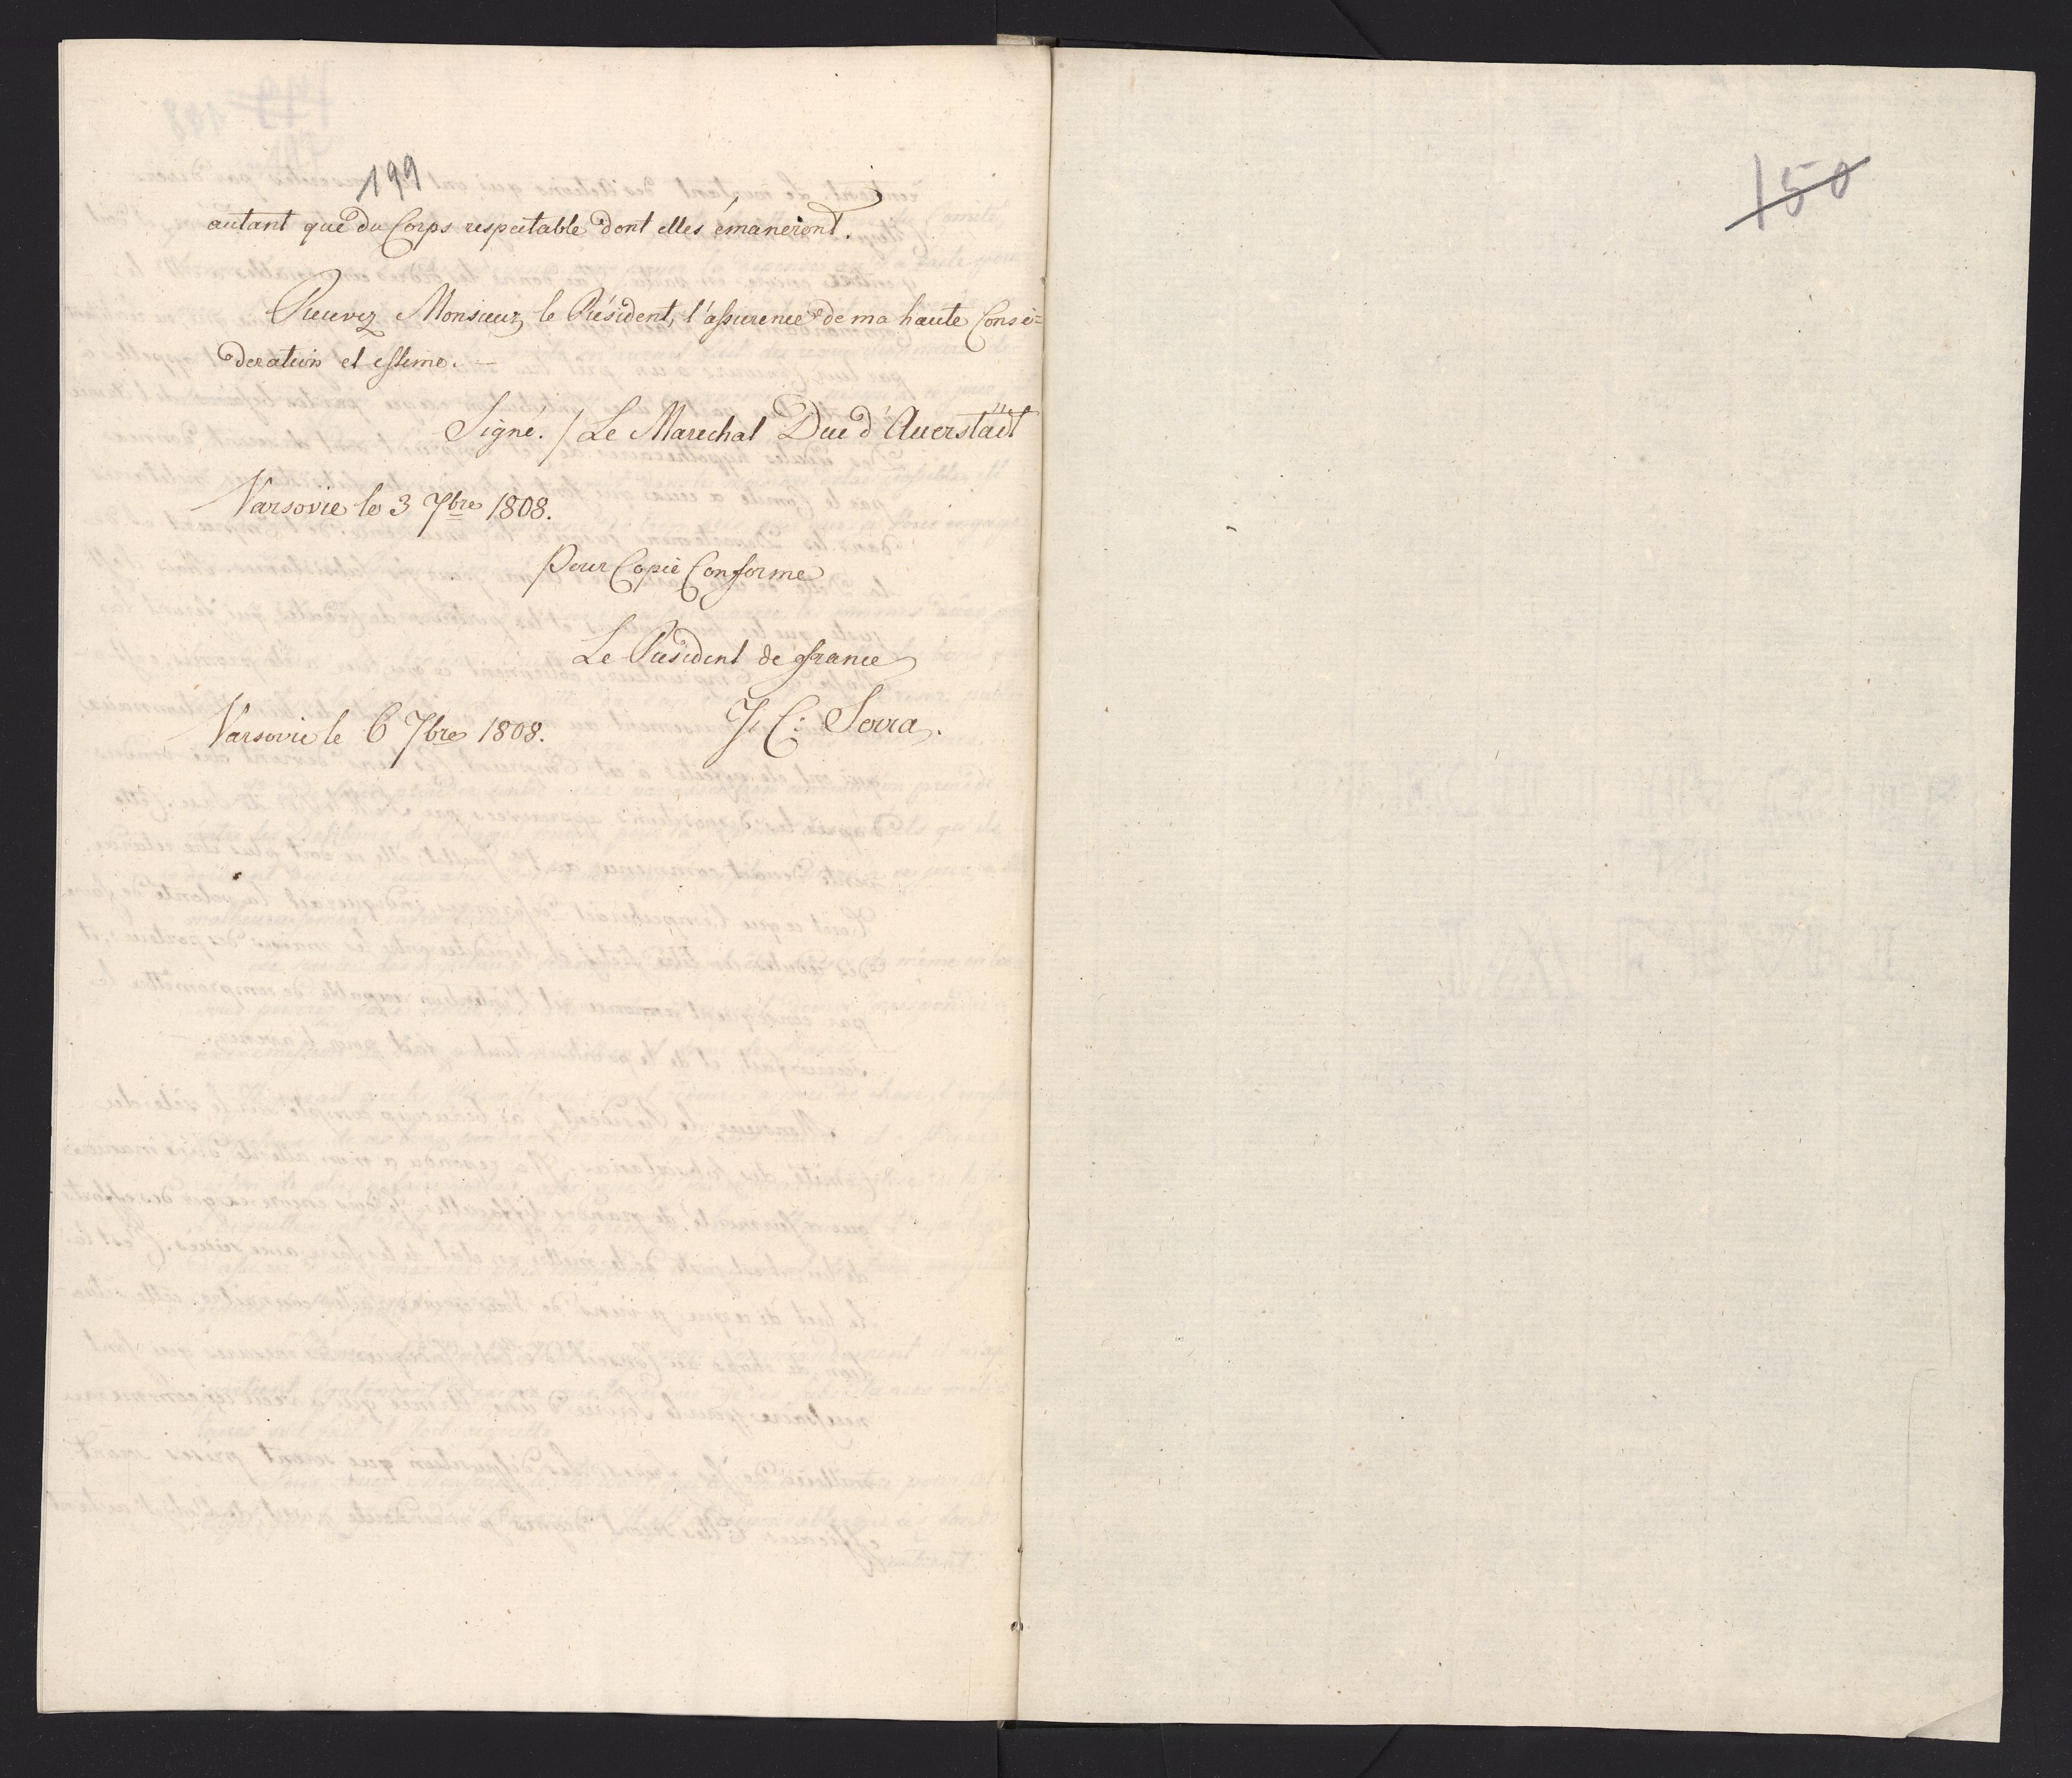 199
autant que du Corps respectable dont elles émaneront.
Recevez Monsieur le Président, l'assurence de ma haute Consi=
deration et estime. —
Signé. / Le Marechal Duc d'Auerstädt
Varsovie le 3 7bre 1808.
Pour Copie Conforme
Le Résident de france
J. C: Serra.
Varsovie le 6 7bre 1808.
150